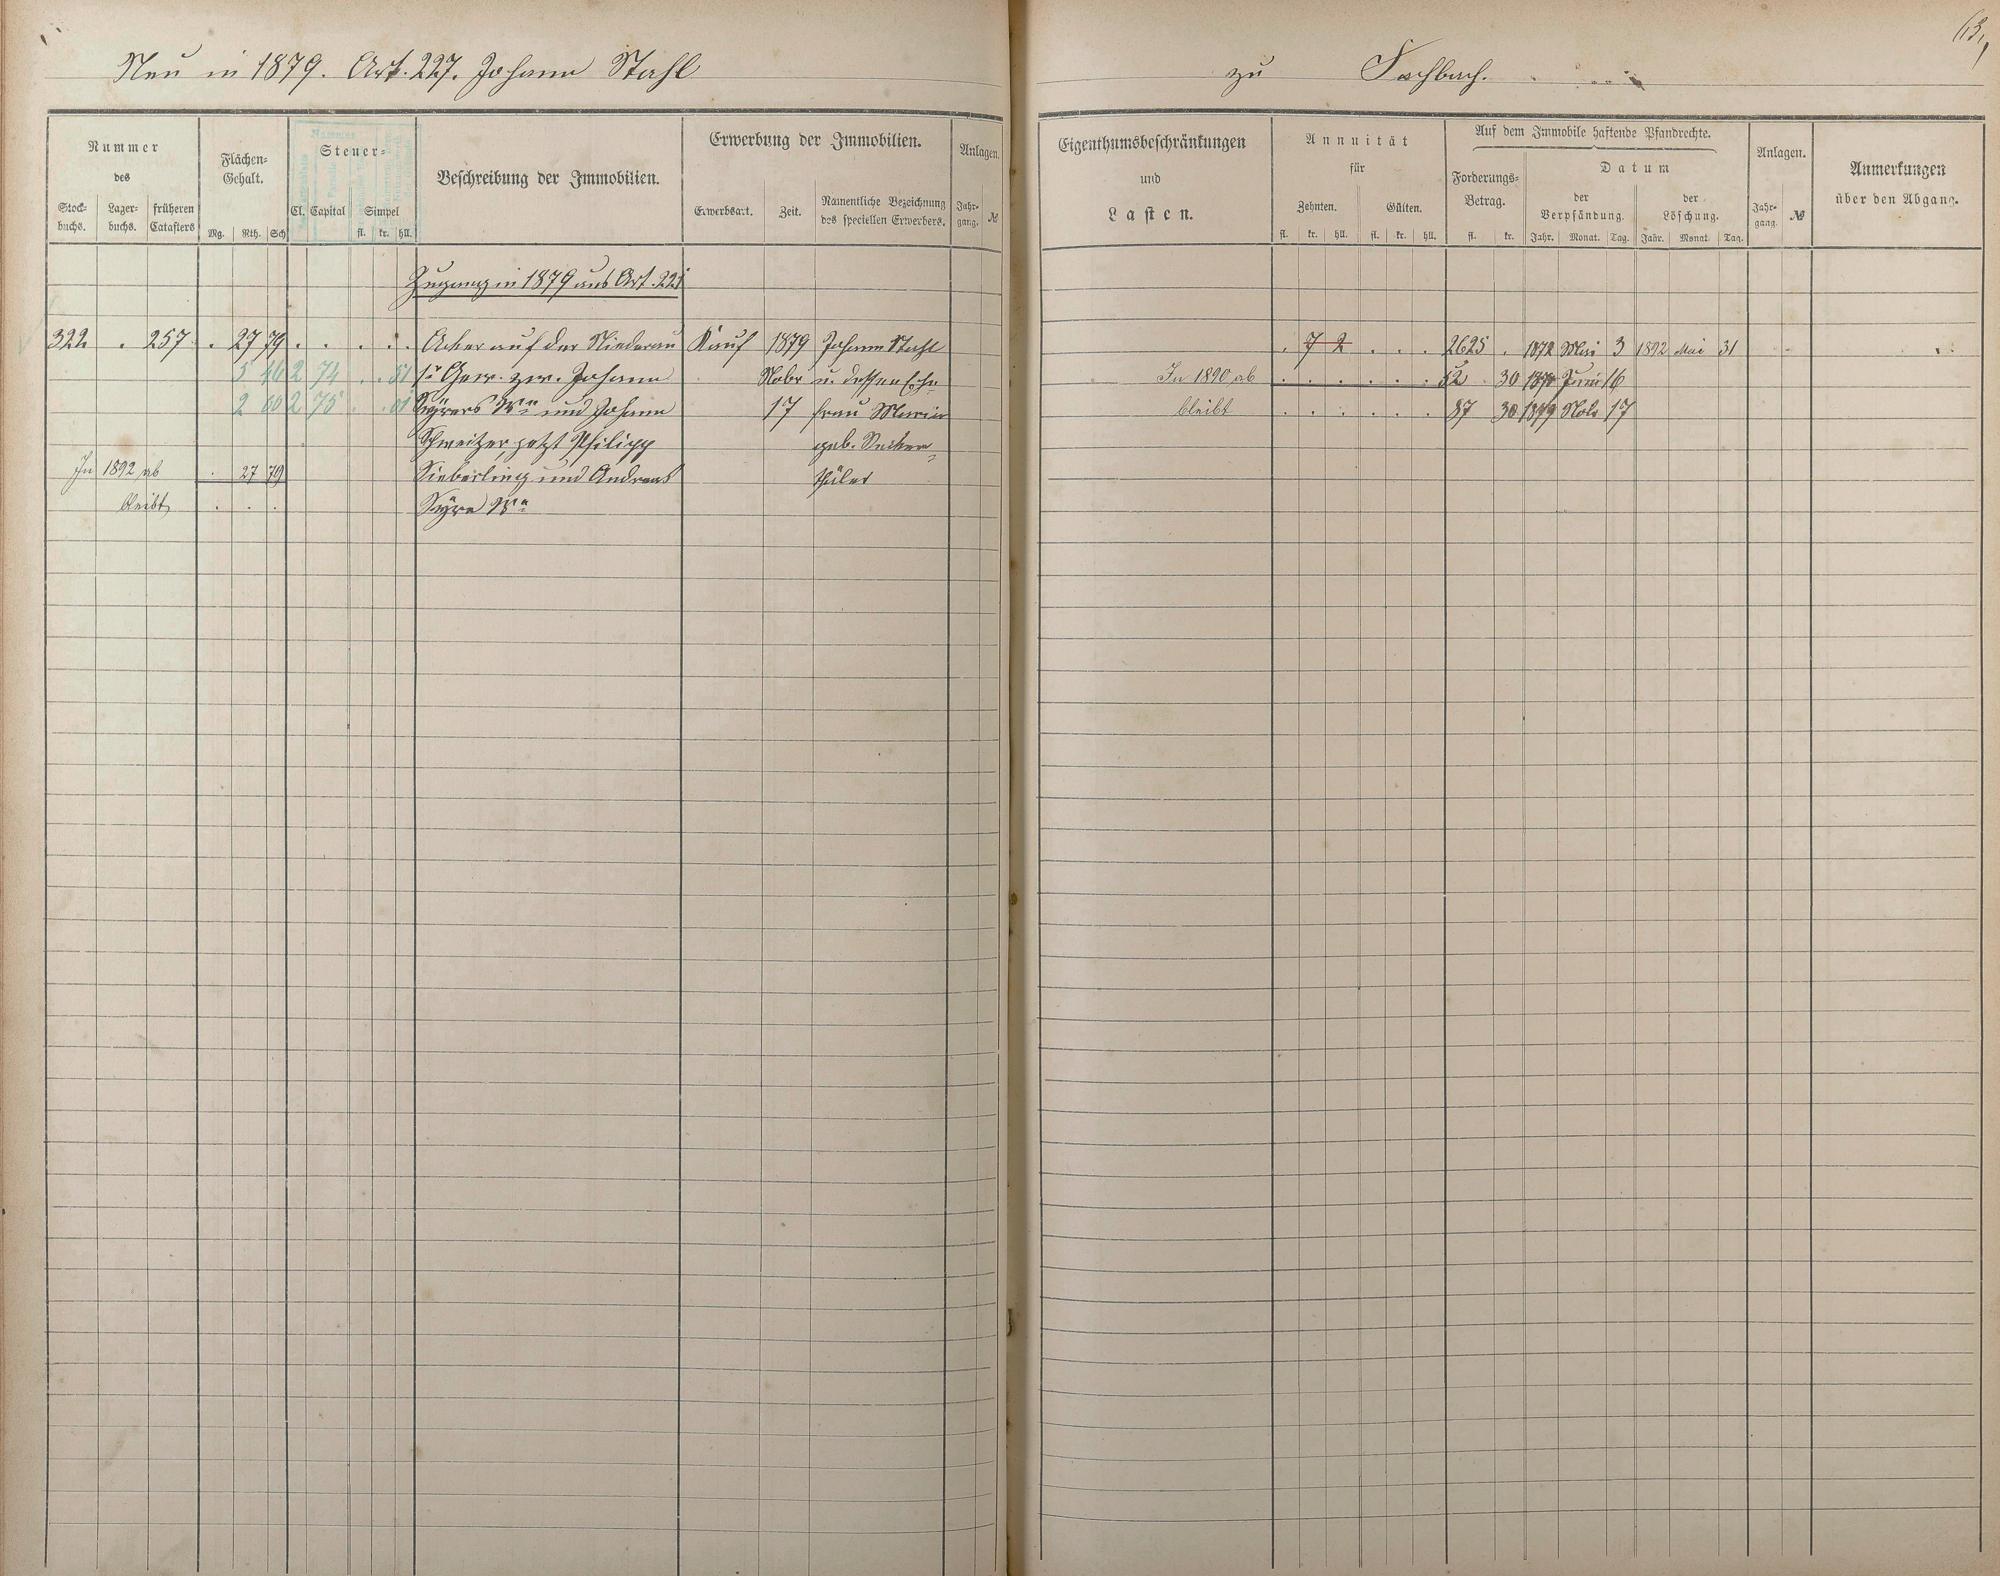 63.
Neu in 1879. Art. 227. Johann Stahl
zu Fachbach.
Nummer
des
Stock-
buchs.
Lager-
buchs.
früheren
Catasters
Flächen-
Gehalt.
Mg. Rth. Sch
Steuer-
Cl. Capital Simpel
fl. kr. hll.
Beschreibung der Immobilien.
Erwerbung der Immobilien.
Erwerbsart. Zeit.
Namentliche Bezeichnung
des speciellen Erwerbers.
Anlagen.
Jahr-
gang. №
Eigenthumsbeschränkungen
und
Lasten.
Annuität
für
Zehnten. Gülten.
fl. kr. hll. fl. kr. hll.
Auf dem Immobile haftende Pfandrechte.
Forderungs-
Betrag.
fl. kr.
Datum
der
Verpfändung.
Jahr. Monat. Tag.
der
Löschung.
Jahr. Monat Tag.
Anlagen.
Jahr-
gang. №
Anmerkungen
über den Abgang.
Zugang in 1879 aus Art. 225
322 . 257 . 27 79 . . . . . Acker auf der Niederau Kauf 1879 Johann Stahl
5 46 2 74 . . 51 1r Gew. zw. Johann Nobr u. dessen Ehe-
2 60 2 75 . . 01 Wwe und Johann 17 frau Maria
Schweitzer, jetzt Philipp geb.
In 1892 ab . 27 79 Sieberling und Andreas thäler
bleibt . . . Wwe
. 7 2 . . . 2625 . 1872 Mai 3 1892 Mai 31
In 1890 ab . . . . . . 52 30 Juni 16
bleibt . . . . . . 87 30 1879 Nobr 17